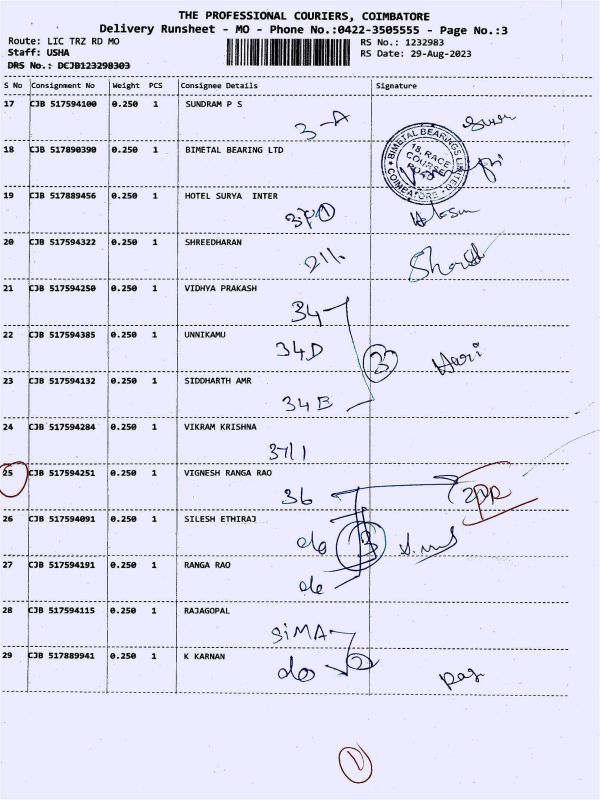 THE PROFESSIONAL COURIERS, COIMBATORE
Delivery Runsheet - MO - Phone No.:0422-3505555 - Page No.:3
Route: LIC TRZ RD MO RS No.: 1232983
Staff: USHA RS Date: 29-Aug-2023
DRS No.: DCJB123298303
S No Consignment No Weight PCS Consignee Details Signature
17 CJB 517594100 0.250 1 SUNDRAM P S
3-A
18 CJB 517890390 0.250 1 BIMETAL BEARING LTD
BIMETAL BEARINGS LIMITED
18, RACE
COURSE
ROAD
COIMBATORE
19 CJB 517889456 0.250 1 HOTEL SURYA INTER
20 CJB 517594322 0.250 1 SHREEDHARAN
21 CJB 517594250 0.250 1 VIDHYA PRAKASH
34
22 CJB 517594385 0.250 1 UNNIKAMU
34D 3 Hari
23 CJB 517594132 0.250 1 SIDDHARTH AMR
34B
24 CJB 517594284 0.250 1 VIKRAM KRISHNA
37/1
25 CJB 517594251 0.250 1 VIGNESH RANGA RAO
36
26 CJB 517594091 0.250 1 SILESH ETHIRAJ
do 3
27 CJB 517594191 0.250 1 RANGA RAO
do
28 CJB 517594115 0.250 1 RAJAGOPAL
SIMA
29 CJB 517889941 0.250 1 K KARNAN
do 2
1